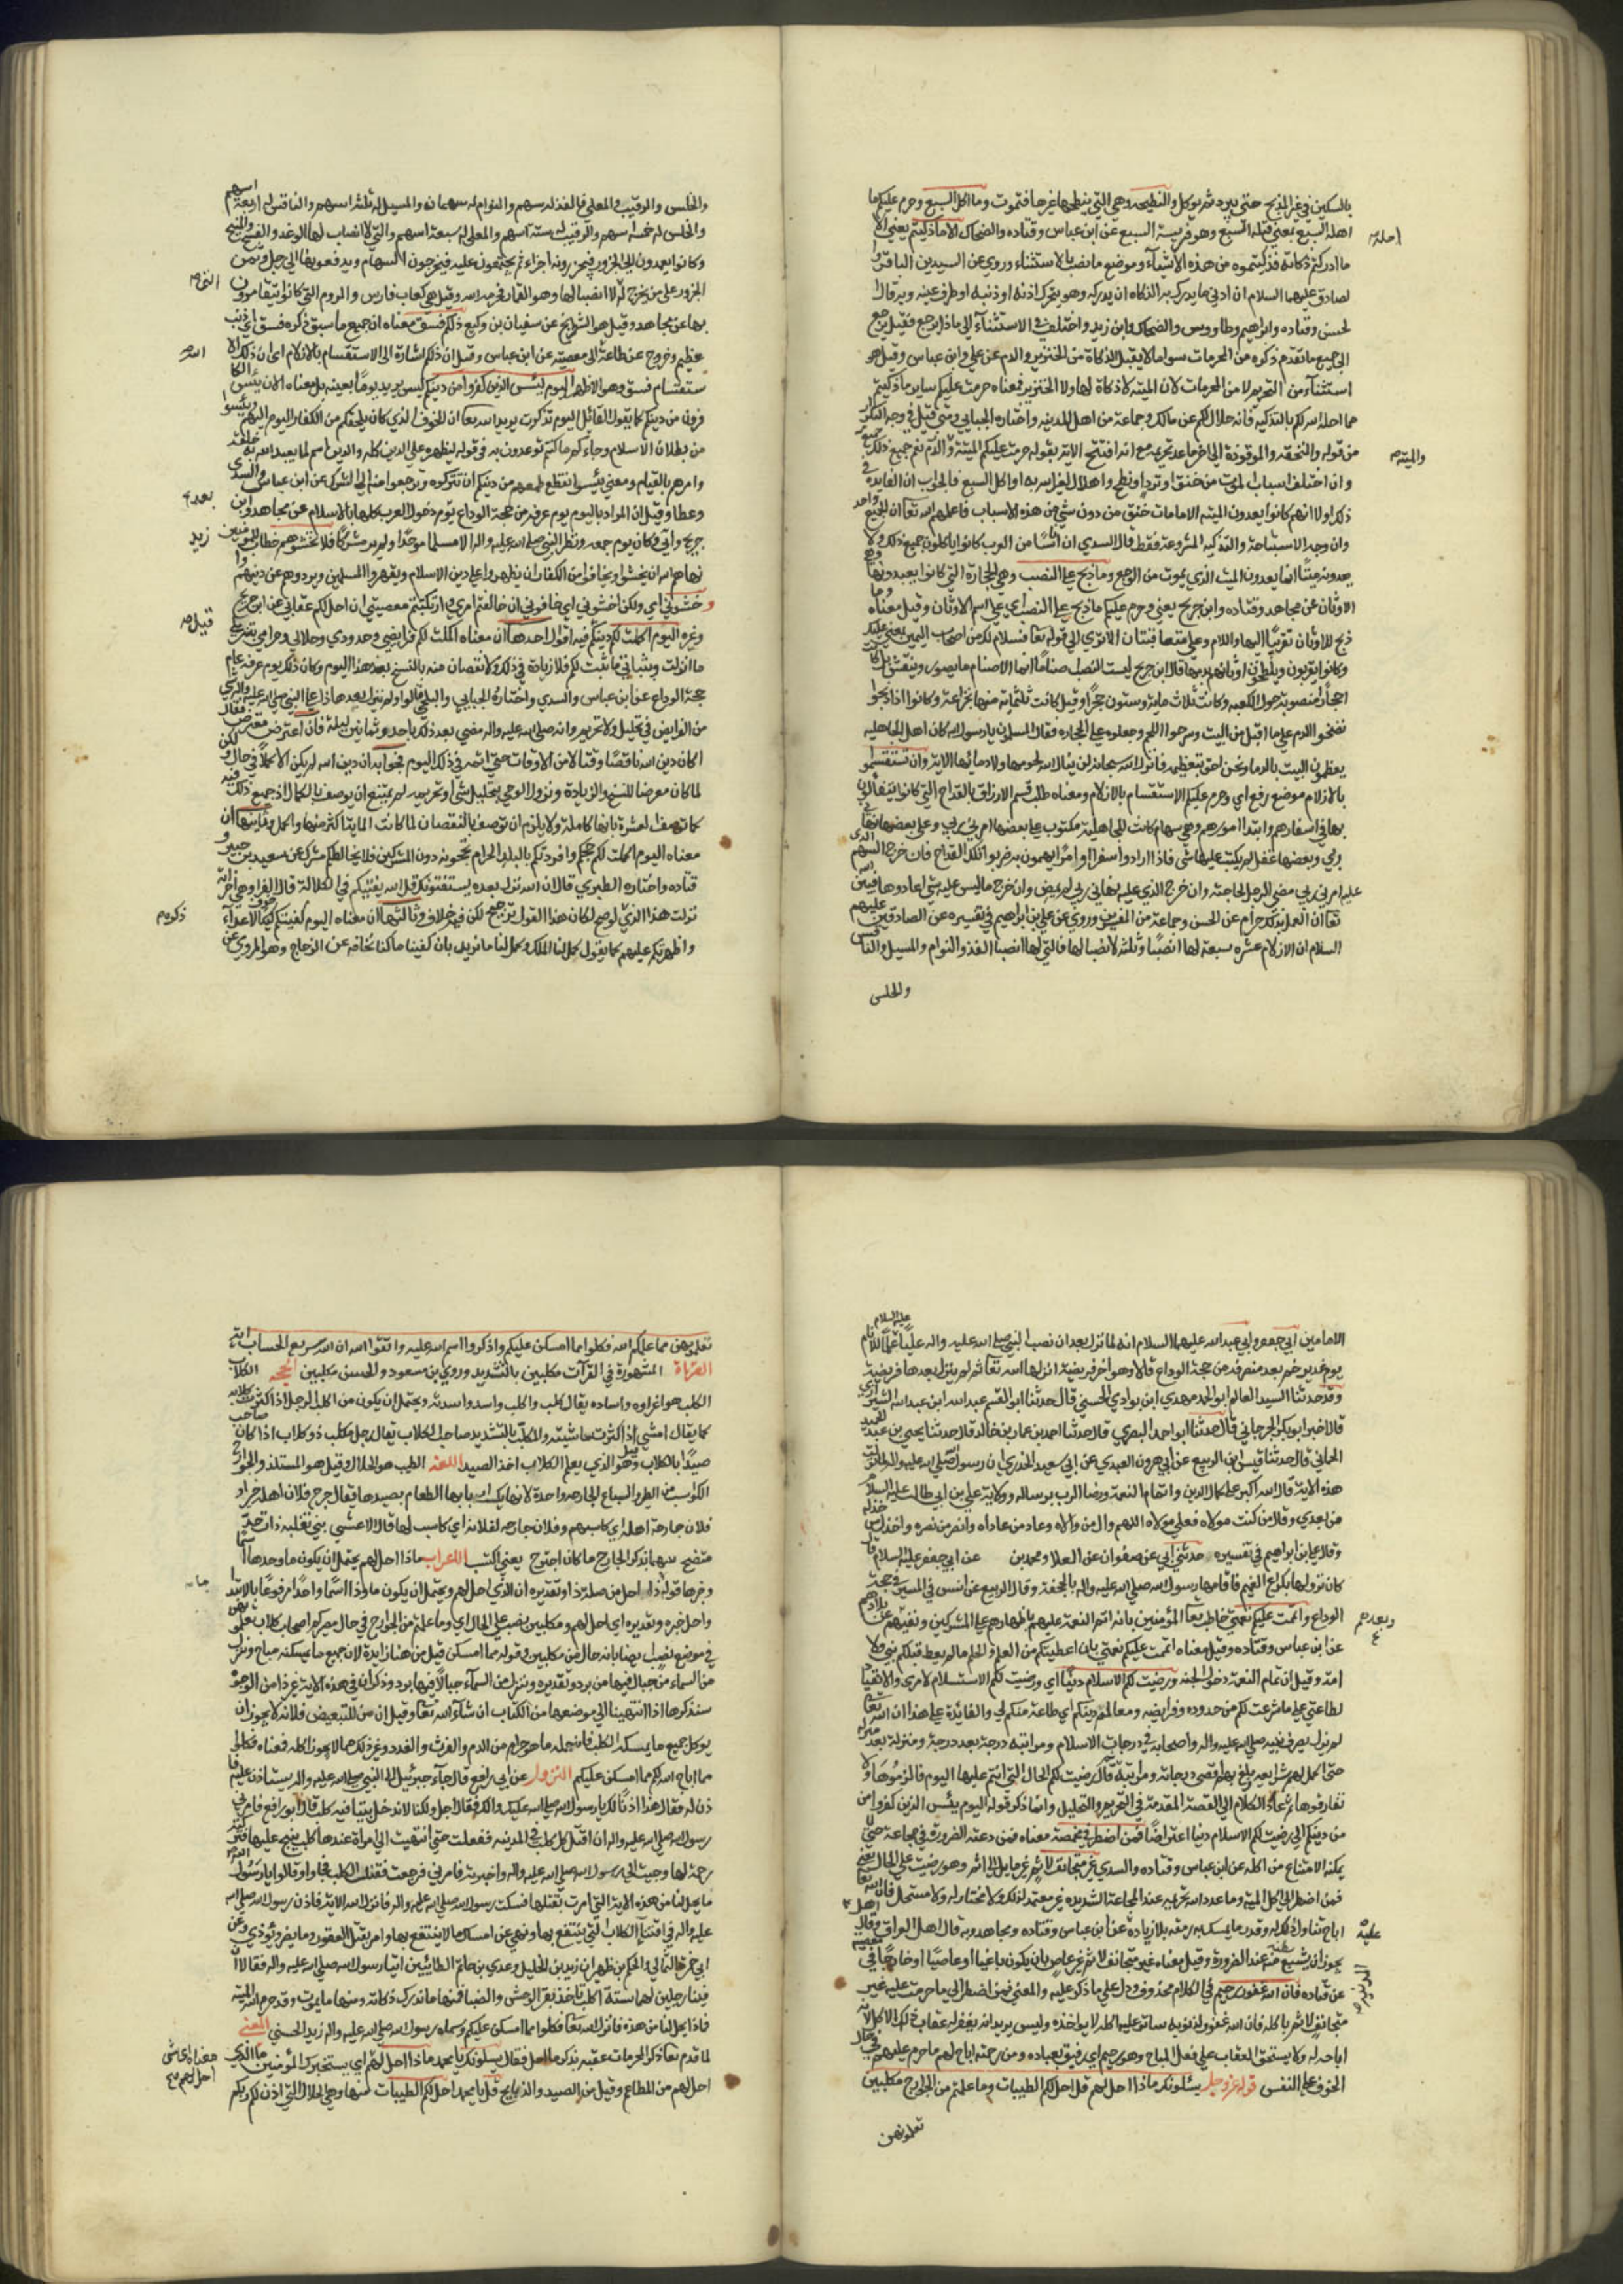 بالسكين في غير المذبح حتى يبرد ثم يوكل والنطيحه وهي التي ينطحها غيرها فتموت وما اكل السبع وحرم عليكم ما
اهله السبع بمعني قتله السبع وهو فريسة السبع عن ابن عباس وقتاده والضحاك الا ما ذكيتم يعني الا
ما ادركتم ذكاته فذكيتموه من هذه الاشيآء وموضع ما نصب بالاستثناء وروي عن السيدين الباقر وا
لصادق عليهما السلام ان ادني ما يدرك به الذكاه ان يدركه وهو يتحرك اذنه او ذنبه او طرف عينه وبه قال ا
لحسن وقتاده وابراهيم وطاووس والضحاك وابن زيد واختلف في الاستثنآء الي ماذا يرجع فقيل يرجع
الي جميع ما تقدم ذكره من المحرمات سوا ما لا يقبل الذكاة من الخنزير والدم عن علي وابن عباس وقيل هو
استثنآء من التحريم لا من المحرمات لان الميته لا ذكاة لها ولا الخنزير فمعناه حرمت عليكم ساير ما ذكيتم
مما احله الله لكم بالتذكيه فانه حلال لكم عن مالك وجماعة من اهل المدينه واختاره الجبايي ومتي قيل في وجه التكرار
من قوله والمنخنقه والموقوذة الي اخر ما عد تحريمه مع انه افتتح الآيه بقوله حرمت عليكم الميتة والدم تعم جميع ذلك
وان اختلف اسباب الموت من خنق او تردٍ او نطح او اهلال لغير الله به او اكل السبع فالجواب ان الفايده في
ذلك اولا انهم كانوا يعدون الميته الا ما مات خنق من دون شي من هذه الاسباب فاعلمهم الله تعآ ان الجميع واحد
وان وجه الاستباحة والتذكيه المشروعة فقط قال السدي ان ناسًا من العرب كانوا ياكلون جميع ذلك ولا
يعدونه ميتًا انما يعدون الميت الذي يموت من الوجع وما ذبح علي النصب وهي الحجارة التي كانوا يعبدونها وهي
الاوثان عن مجاهد وقتاده وابن جريج يعني وحرم عليكم ما ذبح علي النصب اي علي اسم الاوثان وقيل معناه وما
ذبح للاوثان تقربًا اليها واللام وعلي متعاقبتان الا تري الي قوله تعآ فسلام لك من اصحاب اليمين بمعني عليك
وكانوا يقربون ويلطخون اوثانهم بدمها قال ابن جريج ليست النصب اصنامًا انما الاصنام ما يصور وينقش بل كانت
احجارًا منصوبة حول الكعبه وكانت ثلاث ماية وستون حجرًا وقيل كانت ثلثماية منها لخزاعة وكانوا اذا ذبحوا
نضحوا الدم علي ما اقبل من البيت وشرحوا اللحم وجعلوه علي الحجاره فقال المسلمون يا رسول الله كان اهل الجاهليه
يعظمون البيت بالدما ونحن احق بتعظيمه فانزل الله سبحانه لن ينال الله لحومها ولا دمآئها الايه وان تستقسموا
بالازلام موضع رفع اي وحرم عليكم الاستقسام بالازلام ومعناه طلب قسم الارزاق بالقداح التي كانوا يتفألون
بها في اسفارهم وابتدا امورهم وهي سهام كانت للجاهلية مكتوب علي بعضها امرني ربي وعلي بعضها نهاني
ربي وبعضها غفل لم يكتب عليها شي فاذا ارادوا سفرا او امرًا يهمون به ضربوا تلك القداح فان خرج السهم الذي
عليه امرني ربي مضي الرجل لحاجته وان خرج الذي عليه نهاني ربي لم يمض وان خرج ما ليس عليه شي اعادوها فبين الله
تعآ ان العمل بذلك حرام عن الحسن وجماعة من المفسرين وروي عن علي بن ابراهيم في تفسيره عن الصادقين عليهم
السلام ان الازلام عشره سبعة لها انصبآ وثلثه لا انصبا لها فالتي لها انصبا الفذ والتوام والمسبل والنافس
والحلس
احله
والميته
والحلس والرقيب والمعلي فالفذ له سهم والتوام له سهمان والمسبل له ثلثة اسهم والنافس له اربعة اسهم
والحلس له خمسة اسهم والرقيب له ستة اسهم والمعلي له سبعة اسهم والتي لا انصبا لها الوغد والسفيح والمنيح
وكانوا يعمدون الي الجزور فيجزرونه اجزاء ثم يجتمعون عليه فيخرجون السهام ويدفعونها الي رجل وثمن
الجزور علي من يخرج له التي لا انصبا لها وهو القمار فحرمه الله وقيل هي كعاب فارس والروم التي كانوا يتقامرون
بها عن مجاهد وقيل هو الشطرنج عن سفيان بن وكيع ذلكم فسق معناه ان جميع ما سبق ذكره فسق اي ذنب
عظيم وخروج عن طاعة الي معصيته عن ابن عباس وقيل ان ذلك اشارة الي الاستقسام بالازلام اي ان ذلك الا
ستقسام فسق وهو الاظهر اليوم يئس الذين كفروا من دينكم ليس يريد يومًا بعينه بل معناه الان يئس الكا
فرون من دينكم كما يقول القائل اليوم قد كبرت يريد الله تعآ ان الخوف الذي كان يلحقكم من الكفار اليوم اليهم ويئسوا
من بطلان الاسلام وجاءكم ما كنتم توعدون به في قوله ليظهره علي الدين كله والدين اسم لما يعبد الله به خلقه
وامرهم بالقيام ومعني يئسوا انقطع طمعهم من دينكم ان تتركوه وترجعوا منه الي الشرك عن ابن عباس والسدي
وعطا وقيل ان المراد باليوم يوم عرفه من حجة الوداع يوم دخول العرب كلها في الاسلام عن مجاهد وابن
جريج وابن زيد وكان يوم جمعه ونظر النبي صلي الله عليه واله الا مسلما موحدًا ولم ير مشركًا فلا تخشوهم خطاب للمومنين
نهاهم الله ان يخشوا ويخافوا من الكفار ان يظهروا علي دين الاسلام ويقهروا المسلمين ويردوهم عن دينهم وا
خشوني اي ولكن اخشوني اي خافوني ان خالفتم امري وارتكبتم معصيتي ان احل لكم عقابي عن ابن جريج
وغيره اليوم اكملت لكم دينكم فيه اقوال احدها ان معناه اكملت لكم فرايضي وحدودي وحلالي وحرامي بتنزيلي
ما انزلت وبتبياني ما ثبت لكم فلا زيادة في ذلك ولا نقصان منه بالنسخ بعد هذا اليوم وكان ذلك يوم عرفه عام
حجة الوداع عن ابن عباس والسدي واختاره الجبايي والبلخي قالوا ولم ينزل بعد هذا علي النبي صلي الله عليه واله شي
من الفرايض في تحليل ولا تحريم وانه صلي الله عليه واله مضي بعد ذلك باحد وثمانين ليلة فان اعترض معترض فقال
اكان دين الله ناقصًا وقتا من الاوقات حتي اتمه في ذلك اليوم فجوابه ان دين الله لم يكن الا كاملا في حال ولكن
لما كان معرضا للنسخ والزيادة ونزول الوحي بتحليل شي او تحريمه لم يمتنع ان يوصف بالكمال اذ جميع ذلك فيه
كما توصف العشرة بانها كاملة ولا يلزم ان توصف بالنقصان لما كانت الماية اكثر منها واكمل وثانيها ان
معناه اليوم اكملت لكم حجكم وافردتكم بالبلد الحرام تحجونه دون المشركين فلا يخالطكم مشرك عن سعيد بن جبير و
قتاده واختاره الطبري قال لان الله نزل بعده يستفتونك قل الله يفتيكم في الكلالة قال الفرا وهي اخر آية
نزلت هذا الذي لو صح لكان هذا القول ترجيح لكن فيه خلاف وثالثها ان معناه اليوم كفيتكم خوف الاعداء
واظهرتكم عليهم كما يقول كمل لنا الملك وكمل لنا ما نريد بان كفينا ما كنا نخافه عن الزجاج وهو المروي عن
الامامين ابي جعفر وابي عبد الله عليهما السلام انه لما نزل بعد ان نصب النبي صلي الله عليه واله عليًا علمًا للانام عليه السلام
يوم غدير خم بعد منصرفه من حجة الوداع قالا وهو اخر فريضة انزلها الله تعآ ثم لم ينزل بعدها فريضه
وقد حدثنا السيد العالم ابو الحمد مهدي ابن نزار الحسني قال حدثنا ابو القسم عبيد الله ابن عبد الله
قال اخبرنا ابو بكر الجرجاني قال حدثنا ابو احمد البصري قال حدثنا احمد بن عمار بن خالد قال حدثنا يحيي بن عبد الحميد
الحماني قال حدثنا قيس ابن الربيع عن ابي هرون العبدي عن ابي سعيد الخدري ان رسول الله صلي الله عليه واله لما نزلت
هذه الايه قال الله اكبر علي اكمال الدين واتمام النعمة ورضا الرب برسالتي وولاية علي بن ابي طالب عليه السلام
من بعدي وقال من كنت مولاه فعلي مولاه اللهم وال من والاه وعاد من عاداه وانصر من نصره واخذل من خذله
وقال علي ابن ابراهيم في تفسيره حدثني ابي عن صفوان عن العلا ومحمد بن عن ابي جعفر عليه السلام قا
كان نزولها بكراع الغميم فاقامها رسول الله صلي الله عليه واله بالجحفه وقال الربيع عن انس في المسير في حجة
الوداع واتممت عليكم نعمتي خاطب تعآ المؤمنين بانه اتم النعمة عليهم باظهارهم علي المشركين ونفيهم عن بلادهم
عن ابن عباس وقتاده وقيل معناه اتممت عليكم نعمتي بان اعطيتكم من العلم والحلم ما لم يعط قبلكم نبي ولا
امة وقيل ان تمام النعمة دخول الجنه ورضيت لكم الاسلام دينًا اي ورضيت لكم الاستسلام لامري والانقياد
لطاعتي علي ما شرعت لكم من حدوده وفرايضه ومعالمه دينكم اي طاعة منكم لي والفائدة علي هذا ان الله تعآ
لم يزل يصرف نبيه صلي الله عليه واله واصحابه في درجات الاسلام ومراتبه درجة بعد درجة ومنزلة بعد منزله
حتي اكمل لهم شرايعه وبلغ بهم اقصي درجاته ومراتبه قال رضيت لكم الحال التي انتم عليها اليوم فالزموها ولا
تفارقوها ثم عاد الكلام الي القصة المقدمة في التحريم والتحليل وانما ذكر قوله اليوم يئس الذين كفروا من
من دينكم الي رضيت لكم الاسلام دينا اعتراضًا فمن اضطر في مخمصة معناه فمن دعته الضرورة في مجاعة حتي لا
يمكنه الامتناع من اكله عن ابن عباس وقتاده والسدي غير متجانف لاثم غير مايل الي اثم وهو رضيت علي الحال يعني
فمن اضطر الي اكل الميته وما عدد الله تحريمه عند المجاعة الشديده غير متعمد لذلك ولا مختار له ولا مستحل فان الله تعآ
اباح تناول ذلك له وقدر ما يمسك به رمقه بلا زيادة عن ابن عباس وقتاده ومجاهد وبه قال اهل العراق وقال اهل
يجوز ان يشبع منه عند الضرورة وقيل معناه غير متجانف لاثم غير عاص بان يكون باغيا او عاصيًا او خارجًا في معصيه
عن قتاده فان الله غفور رحيم في الكلام محذوف ودل علي ما ذكر عليه والمعني فمن اضطر الي ما حرمت عليه غير
متجانف لاثم باكله فان الله غفور لذنوبه ساتر عليه اكله لا يواخذه وليس يريد انه يغفر له عقاب ذلك الاكل لانه
اباحه له ولا يستحق العقاب علي فعل المباح وهو رحيم اي رفيق بعباده ومن رحمته اباح لهم ما حرم عليهم في حال
الخوف علي النفس قوله عز وجل يسئلونك ماذا احل لهم قل احل لكم الطيبات وما علمتم من الجوارح مكلبين
تعلمونهن
المدينه
تعلمونهن مما علمكم الله فكلوا مما امسكن عليكم واذكروا اسم الله عليه واتقوا الله ان الله سريع الحساب آية
القراة المشهورة في القرآت مكلبين بالتشديد وروي بن مسعود والحسن مكلبين الحجه اكلاب
الكلب هو اغراوه واساده يقال كلب واكلب واسد واسدته ويحتمل ان يكون من اكلب الرجل اذا كثرت كلابه
كما يقال امشي اذا كثرت ماشيته والمكلب بالتشديد صاحب الكلاب يقال رجل مكلب ذو كلاب اذا كان صاحب
صيد بالكلاب وقيل وهو الذي يعلم الكلاب اخذ الصيد اللغه الطيب هو الحلال وقيل هو المستلذ والجوارح
الكواسب من الطير والسباع الجارحه واحدة لانها يكسب اربابها الطعام بصيدها يقال جرح فلان اهله خيرا و
فلان جارحة اهله اي كاسبهم وفلان جارحه لفلانه اي كاسب لها قال الاعشي بني تغلبه ذات
يذكر الجارح ما كان اجترح يعني اكتسب الاعراب ماذا احل لهم يحتمل ان يكون ما وحدها اسما
وخبرها قوله ذا واحل من صلة ذا وتقديره ان الذي احل لهم ويحتمل ان يكون ماوذا اسمًا واحدًا مرفوعًا بالابتدا
واحل خبره وتقديره اي احل لهم ومكلبين نصب علي الحال اي وما علمتم من الجوارح في حال مصيركم اصحاب كلاب تعلمونهن
في موضع نصب ايضا بانه حال من مكلبين وقوله مما امسكن قيل من هنا زايدة لان جميع ما يمسكنه مباح ونزل
من السماء من جبال فيها من برد وتقديره وننزل من السمآء جبالاً فيها برد وذكر ان في هذه الايه غير ذا من الوجوه
سنذكرها اذا انتهينا الي موضعها من الكتاب ان شآء الله تعآ وقيل ان من للتبعيض فلانه لا يجوز ان
يوكل جميع ما يمسكه الكلب فان جمله ما هو حرام من الدم والفرث والغدد وغير ذلك مما لا يجوز اكله فمعناه فكلوا
مما اباح الله لكم مما امسكن عليكم النزول عن ابي رافع قال جآء جبرئيل الي النبي صلي الله عليه واله يستاذن عليه فا
ذن له فقال هذا اذنًا لك يا رسول الله صلي الله عليك والك فقال اجل ولكنا لا ندخل بيتا فيه كلب قال ابو رافع فامرني
رسول الله صلي الله عليه واله ان اقتل كل كلب في المدينه ففعلت حتي انتهيت الي امراة عندها كلب ينبح عليها فتركته
رحمة لها وجيت الي رسول الله صلي الله عليه واله واخبرته فامرني فرجعت فقتلت الكلب فجاوا وقالوا يا رسول الله
ما يحل لنا من هذه الامة التي امرت بقتلها فسكت رسول الله صلي الله عليه واله فانزل الله الايه فاذن رسول الله صلي الله
عليه واله في اقتنآ الكلاب التي ينتفع بها ونهي عن امساك ما لا ينتفع بها وامر بقتل العقور وما يضر ويؤذي وعن
ابي حمزة الثمالي والحكم بن ظهير ان زيد بن الخليل وعدي بن حاتم الطائيين اتيا رسول الله صلي الله عليه واله فقالا ان
فينا رجلين لهما ستة اكلب تاخذ بقر الوحش والضبا فمنها ما ندرك ذكاته ومنها ما يموت وقد حرم الله الميته
فماذا يحل لنا من هذه فانزل الله تعآ فكلوا مما امسكن عليكم وسماه رسول الله صلي الله عليه واله زيد الخير المعني
لما قدم تعآ ذكر المحرمات عقبه بذكر ما احل فقال يسلونك يا محمد ماذا احل لهم اي يستخبرك المؤمنين ما الذي
احل لهم من المطاعم وقيل من الصيد والذبايح قل يا محمد احل لكم الطيبات منها وهي الحلال التي اذن لكم ربكم